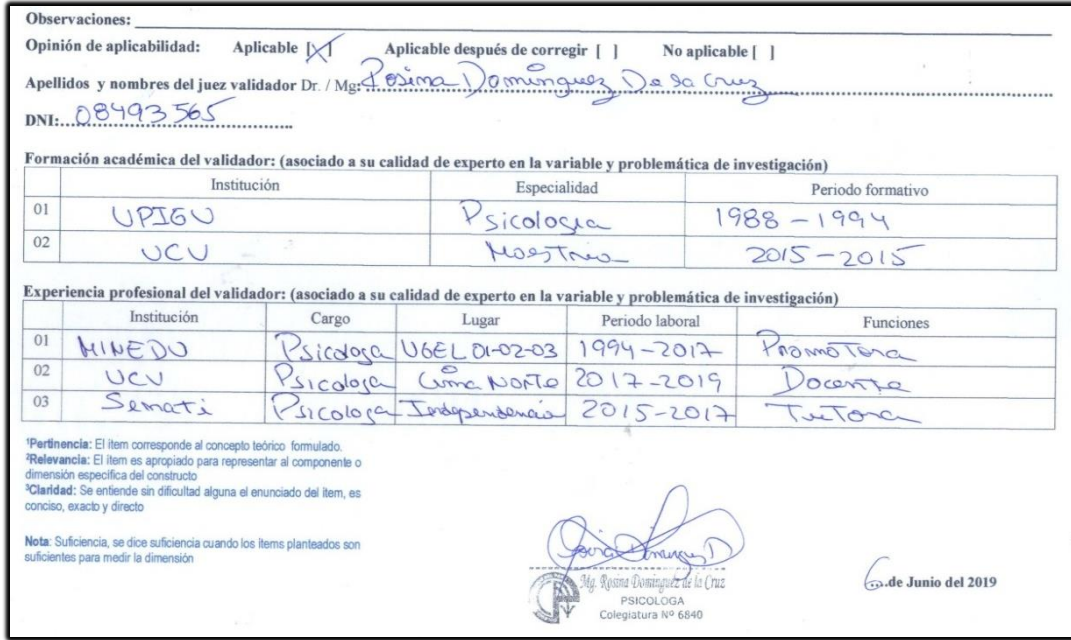 Observaciones:
Opinión de aplicabilidad: Aplicable [X] Aplicable después de corregir [ ] No aplicable [ ]
Apellidos y nombres del juez validador Dr. / Mg: Rosina Dominguez De la Cruz
DNI: 08493565
Formación académica del validador: (asociado a su calidad de experto en la variable y problemática de investigación)
Institución Especialidad Periodo formativo
01 UPIGV Psicologia 1988 - 1994
02 UCV Maestria 2015 - 2015
Experiencia profesional del validador: (asociado a su calidad de experto en la variable y problemática de investigación)
Institución Cargo Lugar Periodo laboral Funciones
01 MINEDU Psicologa UGEL 01-02-03 1994-2017 Promotora
02 UCV Psicologa Lima Norte 2017-2019 Docente
03 Senati Psicologa Independencia 2015-2017 Tutora
¹Pertinencia: El ítem corresponde al concepto teórico formulado.
²Relevancia: El ítem es apropiado para representar al componente o
dimensión específica del constructo
³Claridad: Se entiende sin dificultad alguna el enunciado del ítem, es
conciso, exacto y directo
Nota: Suficiencia, se dice suficiencia cuando los ítems planteados son
suficientes para medir la dimensión
Mg. Rosina Dominguez de la Cruz
PSICOLOGA
Colegiatura Nº 6840
6 de Junio del 2019